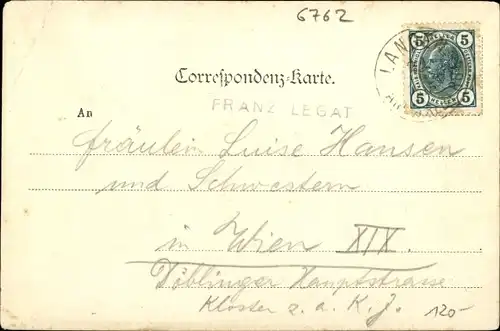 6762
5 5
5 5
HELLER
LAN
Correspondenz-Karte.
FRANZ LEGAT
An
Fräulein Luise Hansen
und Schwestern
in Wien XIX.
Döblinger Hauptstrasse
Kloster z. a. K. J. 120-